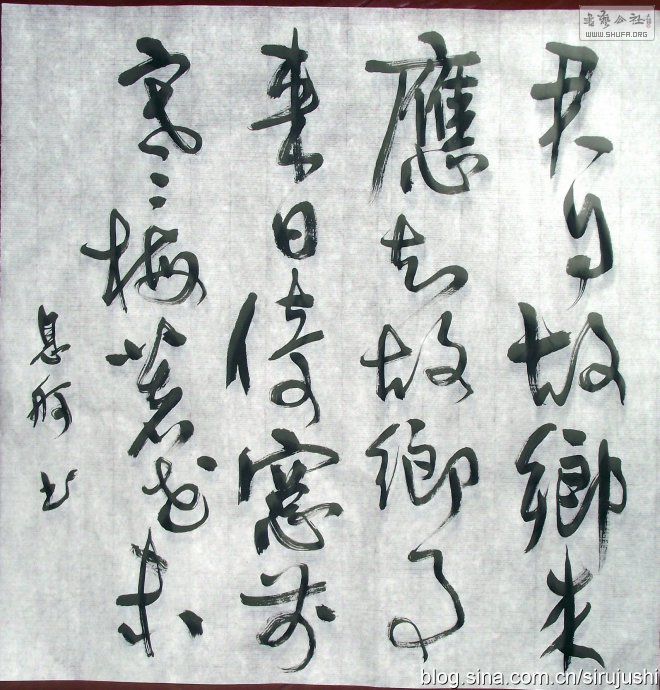 君自故鄉来
應知故鄉事
來日倚窻前
寒梅著花未
息舸书
書藝公社
WWW.SHUFA.ORG
blog.sina.com.cn/sirujushi